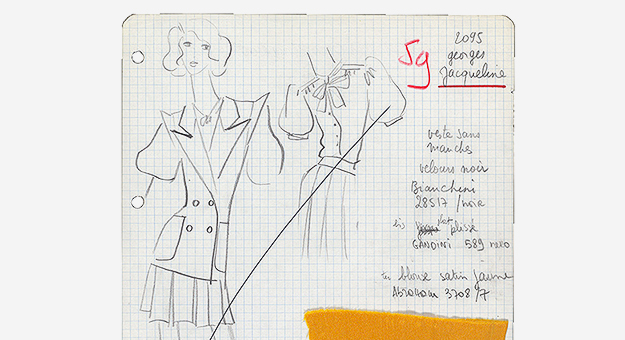 59
2095
georges
Jacqueline
veste sans
manches
velours noir
Bianchini
28517 / noir
plissé
GANDINI 589 nero
blouse satin jaune
Abraham 3708 /7